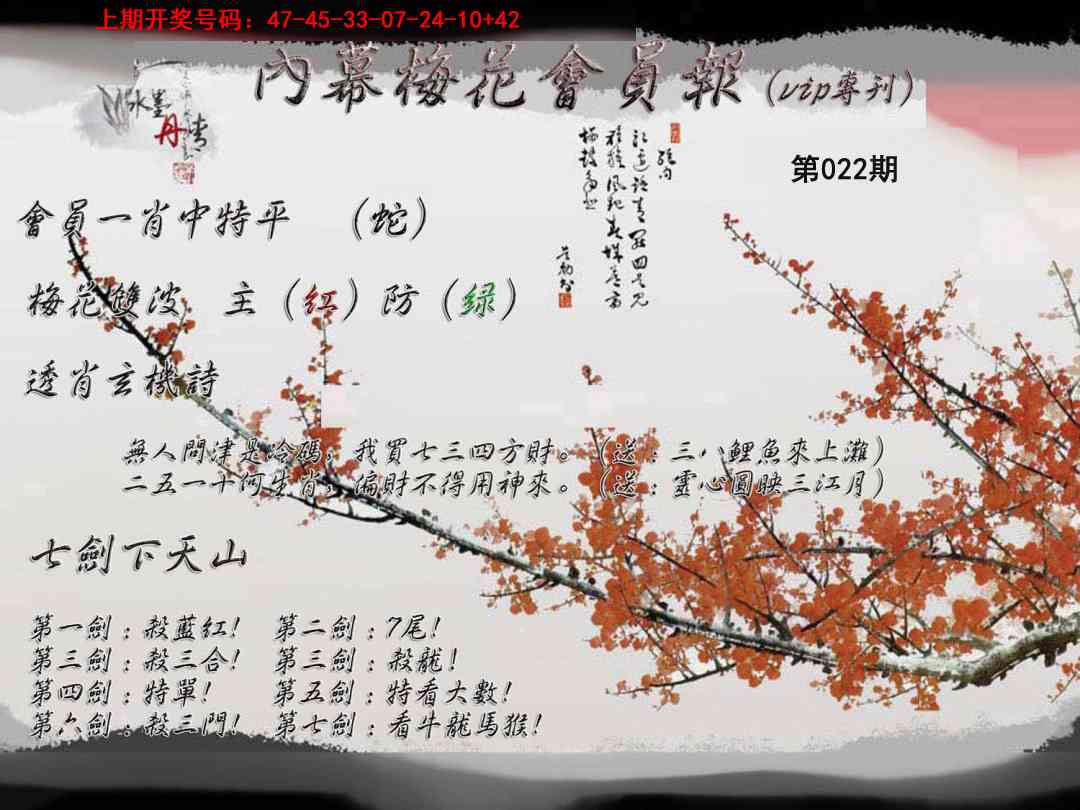 上期开奖号码：47-45-33-07-24-10+42
內幕梅花會員報（vip專刊）
水墨
丹青
第022期
會員一肖中特平 （蛇）
梅花雙波 主（红）防（绿）
透肖玄機詩
無人問津是冷碼，我買七三四方財。（送：三八鯉魚來上灘）
二五一十何生肖，偏財不得用神來。（送：靈心圓映三江月）
七劍下天山
第一劍：殺藍紅！ 第二劍：7尾！
第三劍：殺三合！ 第三劍：殺龍！
第四劍：特單！ 第五劍：特看大數！
第六劍：殺三門！ 第七劍：看牛龍馬猴！